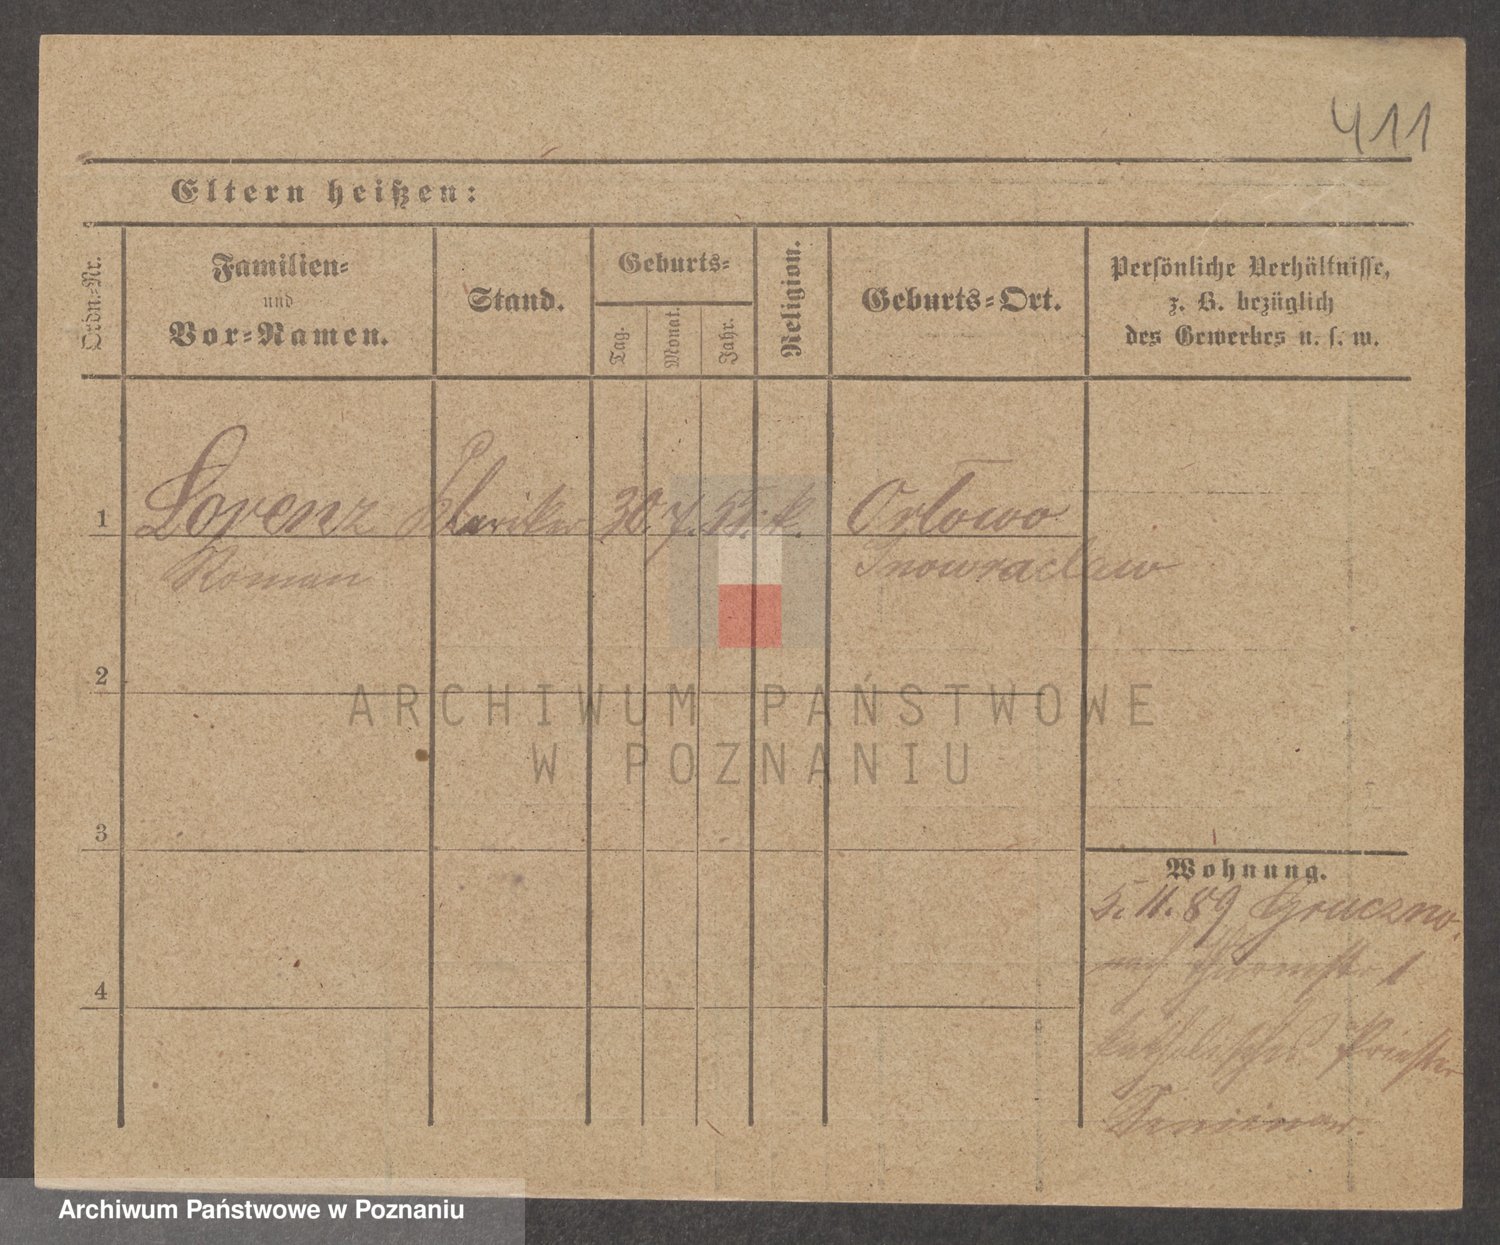 411
Eltern heißen:
Ordn.-Nr.
Familien-
und
Vor-Namen.
Stand.
Geburts-
Tag.
Monat.
Jahr.
Religion.
Geburts-Ort.
Persönliche Verhältnisse,
z. B. bezüglich
des Gewerbes u. s. w.
1 Lorenz Kleriker 30. 7. 55. k. Orłowo
Roman Inowraclaw
2
3
4
Wohnung.
5. 11. 89 Gruczno.
nach 1
katholisches Priester
Seminar.
ARCHIWUM PAŃSTWOWE
W POZNANIU
Archiwum Państwowe w Poznaniu